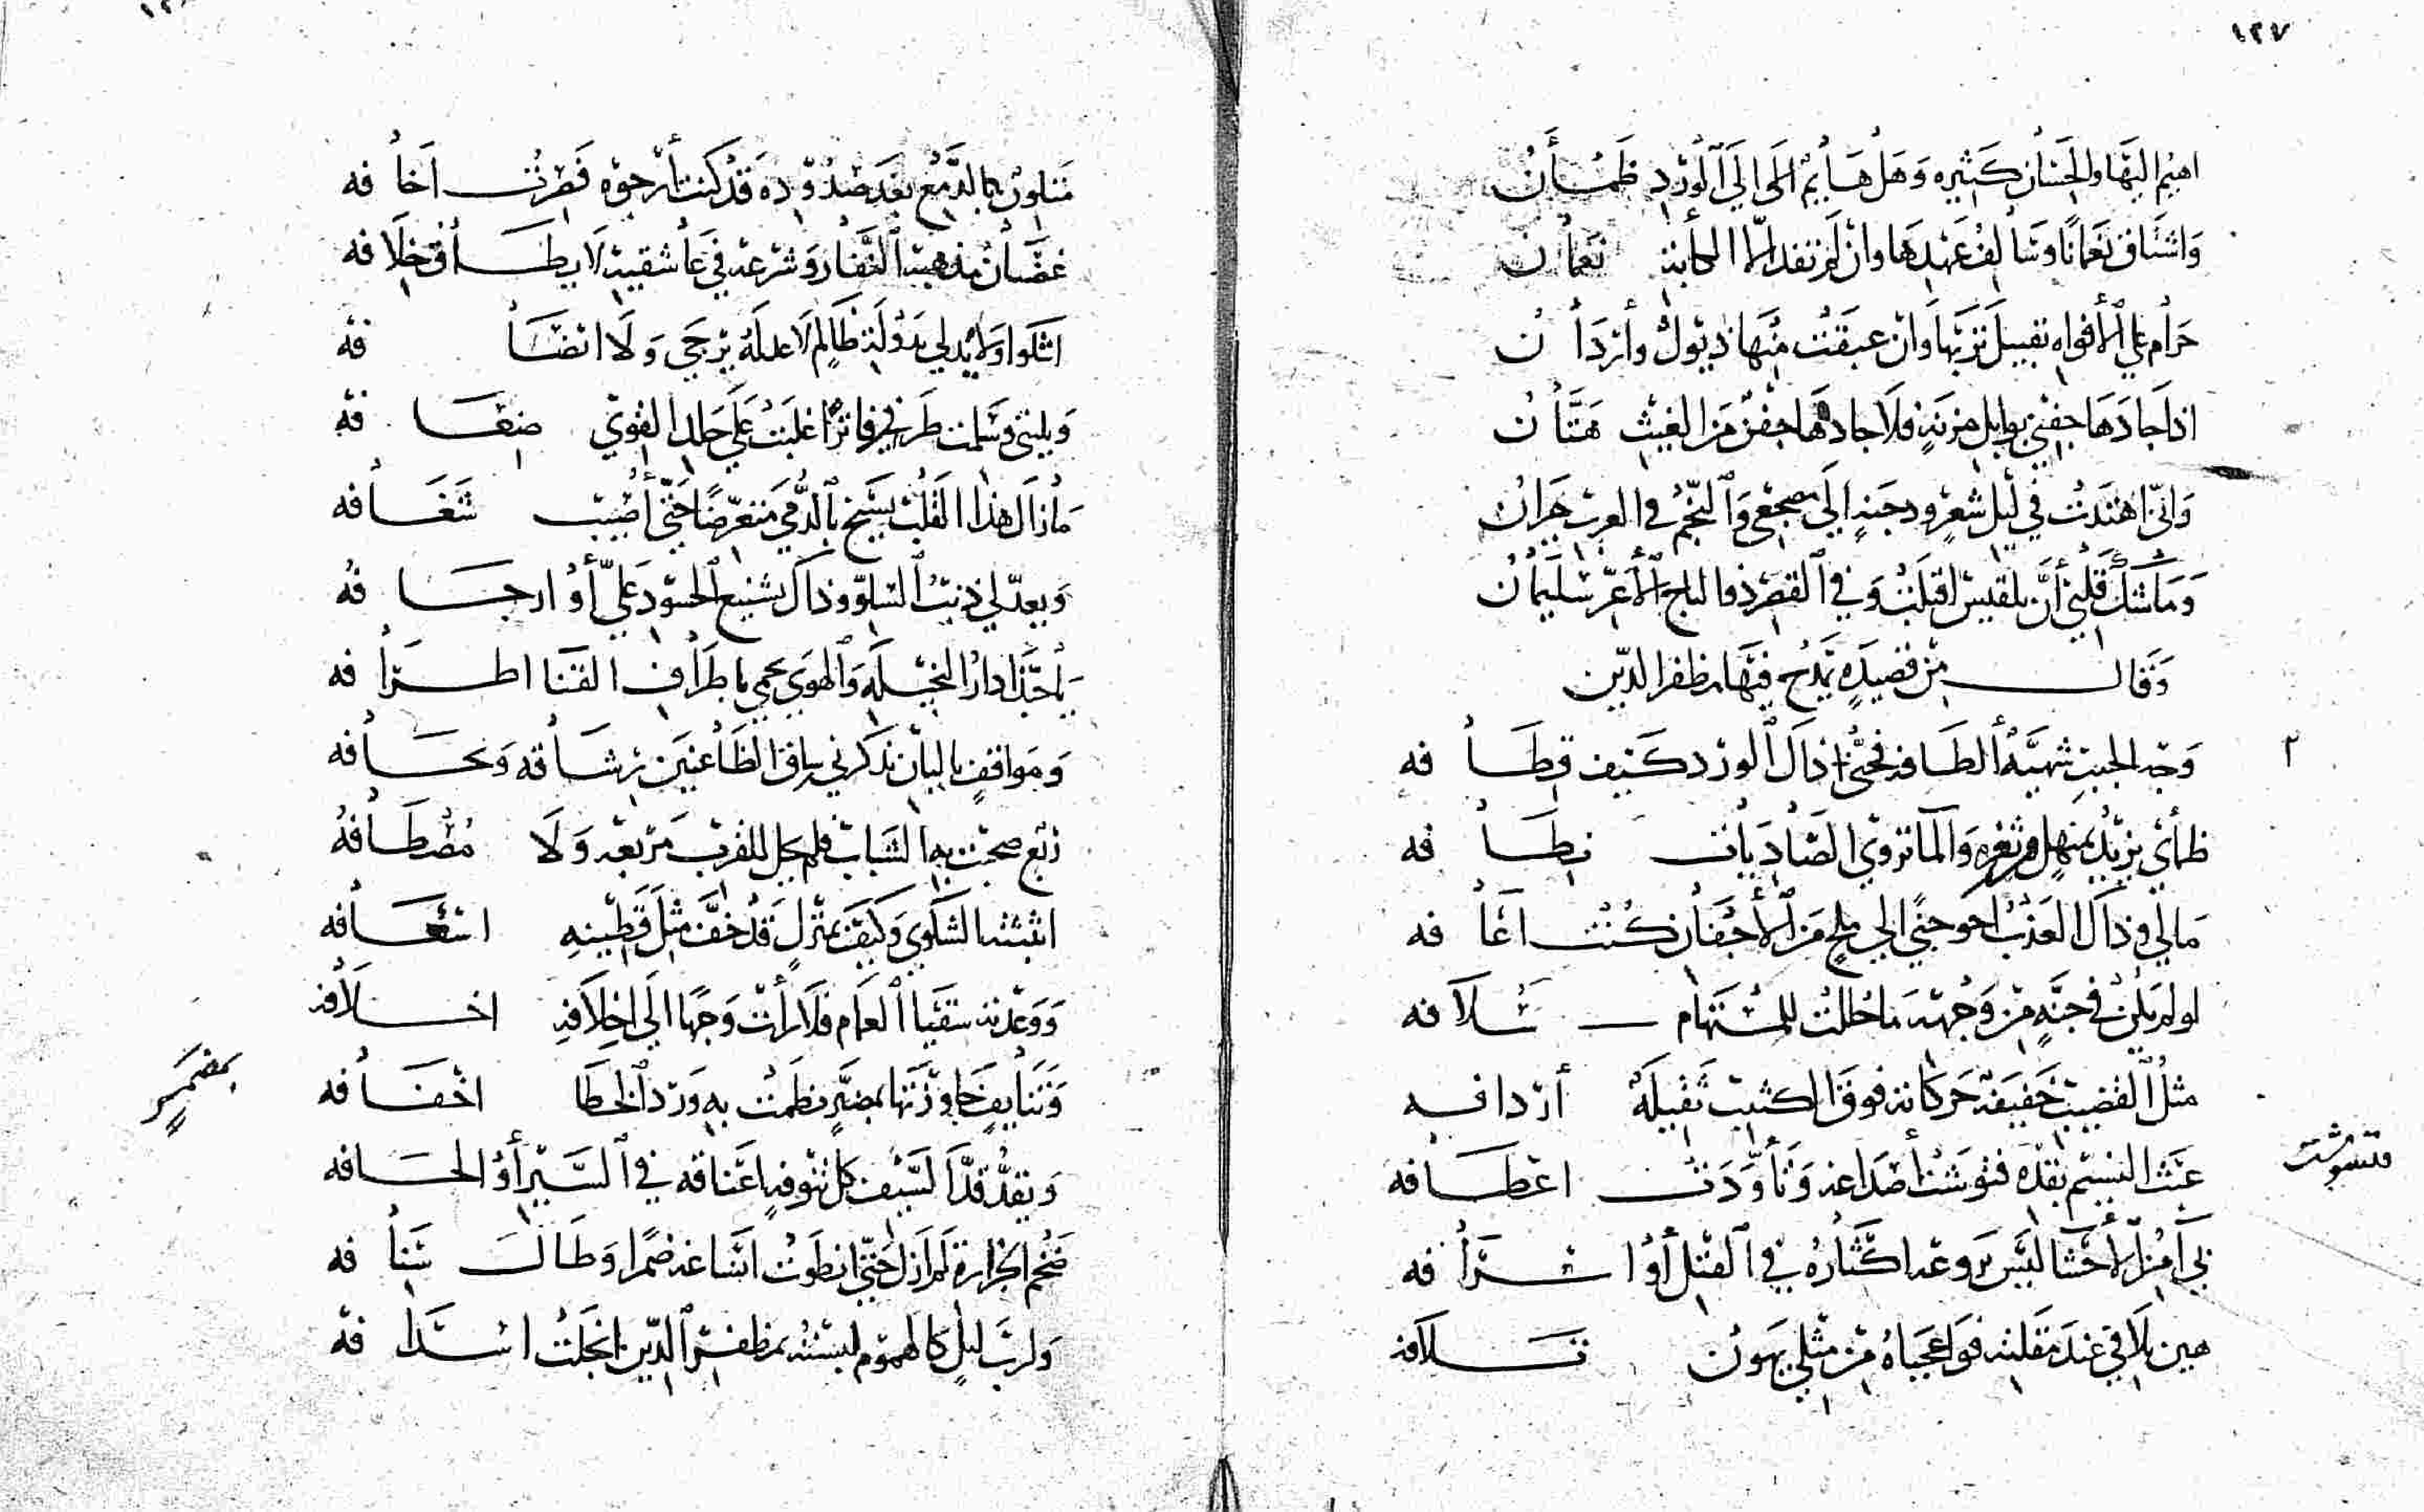 ١٢٧
اهيم اليها والحسان كثيره وهل هايم الى الي الورد ظمأن
واشتاق نعمانا وسالف عهدها وان لم تفد الا الكأبة نعمان
حرام علي الأفواه تقبيل تربها وان عبقت منها ذيول وأردان
اذا جادها جفني بوابل مزنه فلا جادها جفن من الغيث هتان
واني اهتدت في ليل شعر ودجنة الي مضجعي والنجم في الغرب حيران
وما شك قلبي أن بلقيس اقبلت وفي القصر ذو التاج الأعز سليمان
وقال من قصيدة يمدح فيها مظفر الدين
وجه الحبيب شهية ألطافه فحتى اذاك الورد كيف قطافه
ظمأي يزيد بمنهل من ثغره والما تروي الصاديات نطافه
مالي وذاك العذب احوجني الي ملح من الأجفان كنت اعافه
لو لم يكن في جنة من وجهه ما حللت للمستهام سلافه
مثل القضيب خفيفة حركاته فوق الكثيب ثقيلة أردافه
عبث النسيم بقده فتوشت أصداغه وتأودت اعطافه
فتشوشت
بي آمن الأحشا ليس يروعه اكثاره في القتل أو اسرافه
هين تلافي عند مقلته فواعجباه من مثلي يهون تلافه
متلون بالدمع بعد صدوده قد كنت أرجوه فصرت اخافه
غضبان مذهبه النفار وشرعه في عاشقيه لا يطاق خلافه
اشكوا ولا يدلي بدولة ظالم لا عدله يرجي ولا انصافه
ويليّ وسلمت طرفي فاترا غلبت علي جلد القوي ضعافه
ما زال هذا القلب يسبح بالدمي متعرضا حتي أصيب شغافه
ويعد لي ذنب السلو وذاك تشنيع الحسود علي أو ارجافه
يا حبذا دار النخيلة والهوي يحمي باطراف القنا اطرافه
ومواقف بالبان تذكرني رفاق الظاعنين رشاقه ونحافه
ربع صحبت به الشباب فلم يحل للقرب مربعه ولا مصطافه
اثبثته الشكوي وكيف بمنزل قد خف مثل قطينه اسعافه
ووعدته سقيا الغمام فلا رأت وجها الي اخلافه اخلافه
وتنايف جاوزتها بمضمر نظمت به ورد الخطا اخفافه
بمضمر
ويقد قد السيف كل تنوفه اعناقه في السير أو الحافه
ضخم الجزارة لم ازل حتي انطوت انساعه ضمرا وطال شنافه
ولرب ليل كالهموم لبسته بمظفر الدين انجلت اسدافه